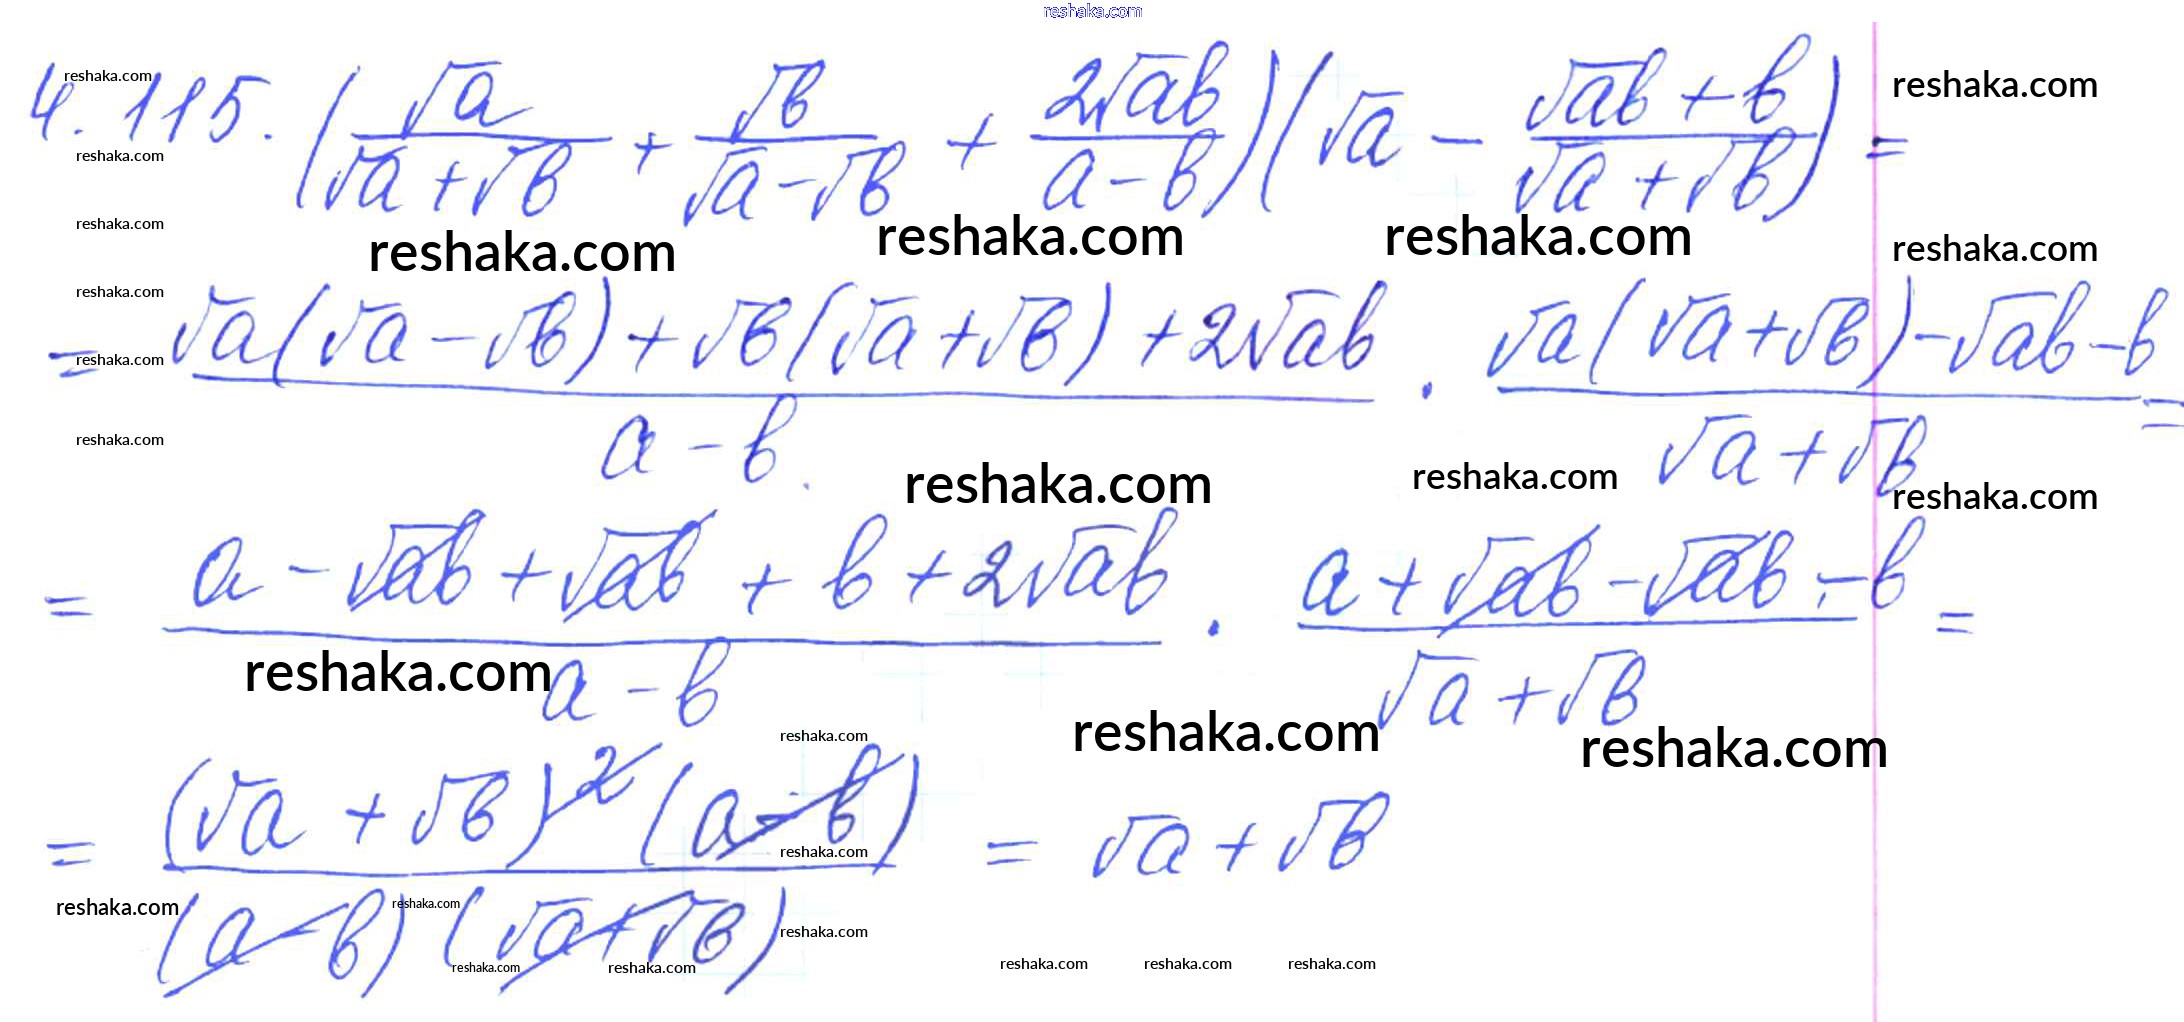 reshaka.com
4.115. (√a/(√a+√b) + √b/(√a-√b) + 2√ab/(a-b))(√a - (√ab+b)/(√a+√b)) =
reshaka.com reshaka.com
reshaka.com
reshaka.com
reshaka.com reshaka.com reshaka.com reshaka.com
reshaka.com
= (√a(√a-√b)+√b(√a+√b)+2√ab)/(a-b) · (√a(√a+√b)-√ab-b)/(√a+√b) =
reshaka.com
reshaka.com
reshaka.com reshaka.com reshaka.com
= (a-√ab+√ab+b+2√ab)/(a-b) · (a+√ab-√ab-b)/(√a+√b) =
reshaka.com reshaka.com reshaka.com
reshaka.com
= ((√a+√b)²(a-b))/((a-b)(√a+√b)) = √a+√b
reshaka.com
reshaka.com reshaka.com reshaka.com
reshaka.com reshaka.com reshaka.com reshaka.com reshaka.com